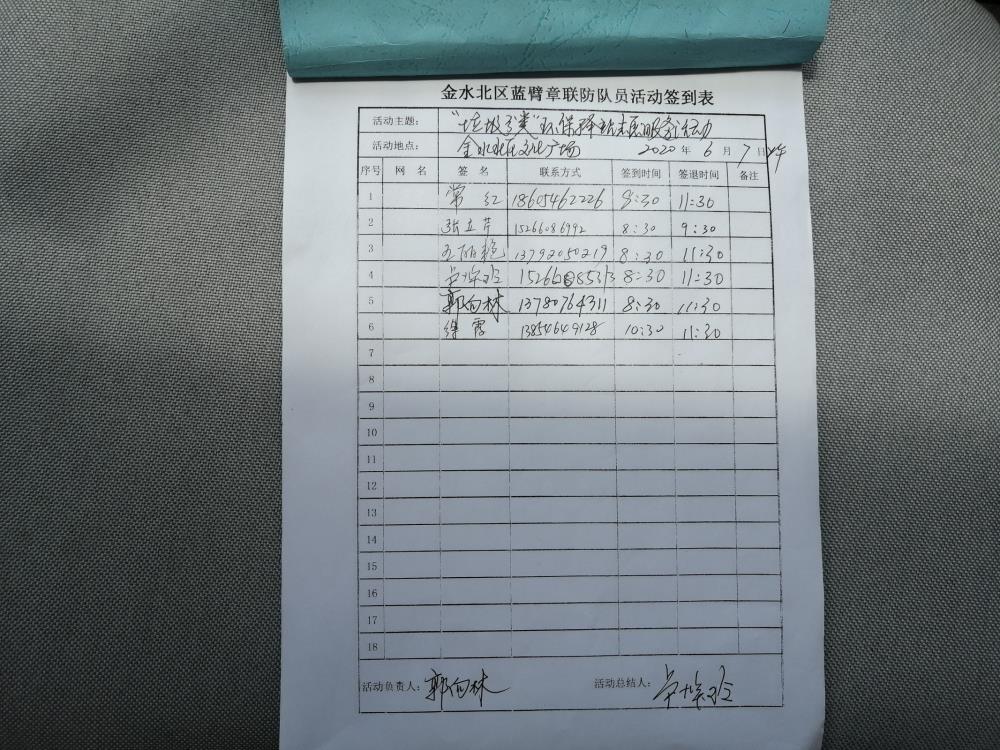 金水北区蓝臂章联防队员活动签到表
活动主题： "垃圾分类"环保 服务活动
活动地点： 金水北区文化广场 2020 年 6 月 7 日
序号 网 名 签 名 联系方式 签到时间 签退时间 备注
1 常红 18605462226 8:30 11:30
2 张立芹 15266086992 8:30 9:30
3 13792050219 8:30 11:30
4 8:30 11:30
5 郭向林 13780764311 8:30 11:30
6 徐霞 13854649128 10:30 11:30
7
8
9
10
11
12
13
14
15
16
17
18
活动负责人： 郭向林 活动总结人：